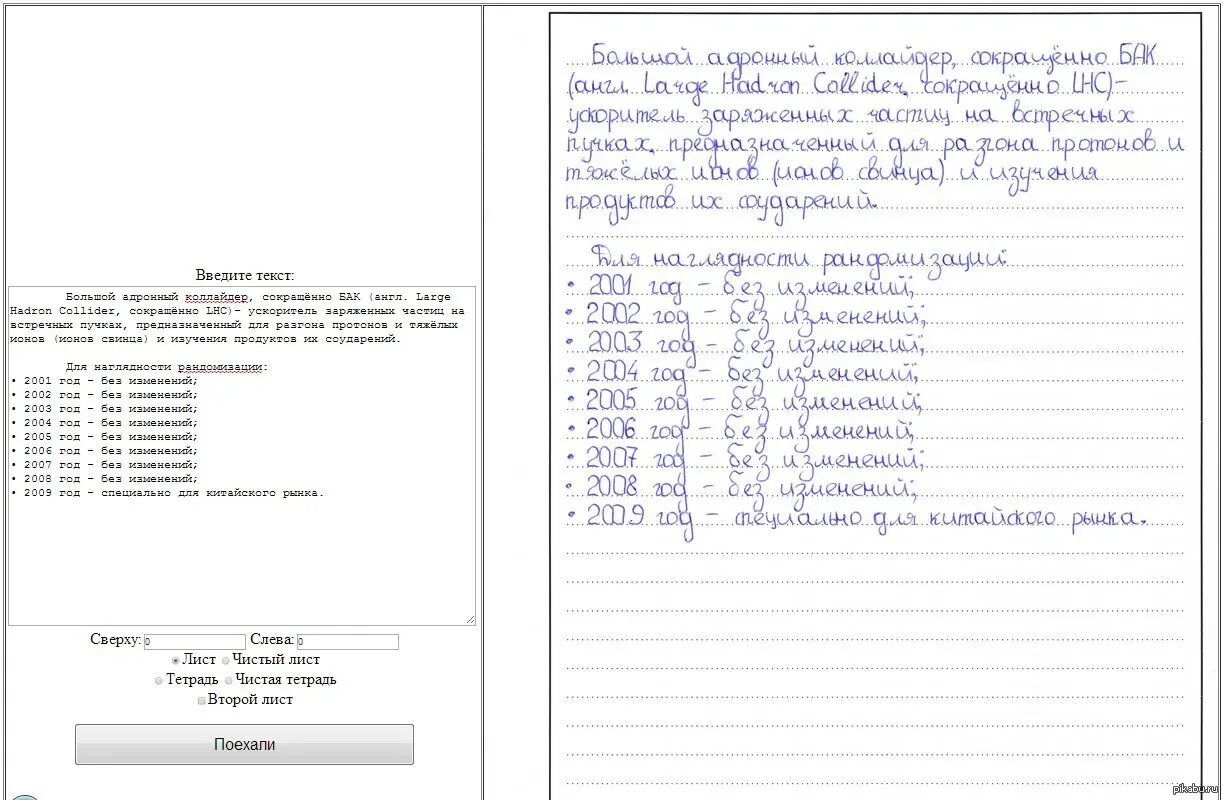 Введите текст:
Большой адронный коллайдер, сокращённо БАК (англ. Large
Hadron Collider, сокращённо LHC)- ускоритель заряженных частиц на
встречных пучках, предназначенный для разгона протонов и тяжёлых
ионов (ионов свинца) и изучения продуктов их соударений.
Для наглядности рандомизации:
• 2001 год - без изменений;
• 2002 год - без изменений;
• 2003 год - без изменений;
• 2004 год - без изменений;
• 2005 год - без изменений;
• 2006 год - без изменений;
• 2007 год - без изменений;
• 2008 год - без изменений;
• 2009 год - специально для китайского рынка.
Сверху: 0 Слева: 0
Лист Чистый лист
Тетрадь Чистая тетрадь
Второй лист
Поехали
Большой адронный коллайдер, сокращённо БАК
(англ. Large Hadron Collider, сокращённо LHC)-
ускоритель заряженных частиц на встречных
пучках, предназначенный для разгона протонов и
тяжёлых ионов (ионов свинца) и изучения
продуктов их соударений.
Для наглядности рандомизации:
• 2001 год - без изменений;
• 2002 год - без изменений;
• 2003 год - без изменений;
• 2004 год - без изменений;
• 2005 год - без изменений;
• 2006 год - без изменений;
• 2007 год - без изменений;
• 2008 год - без изменений;
• 2009 год - специально для китайского рынка.
pikabu.ru